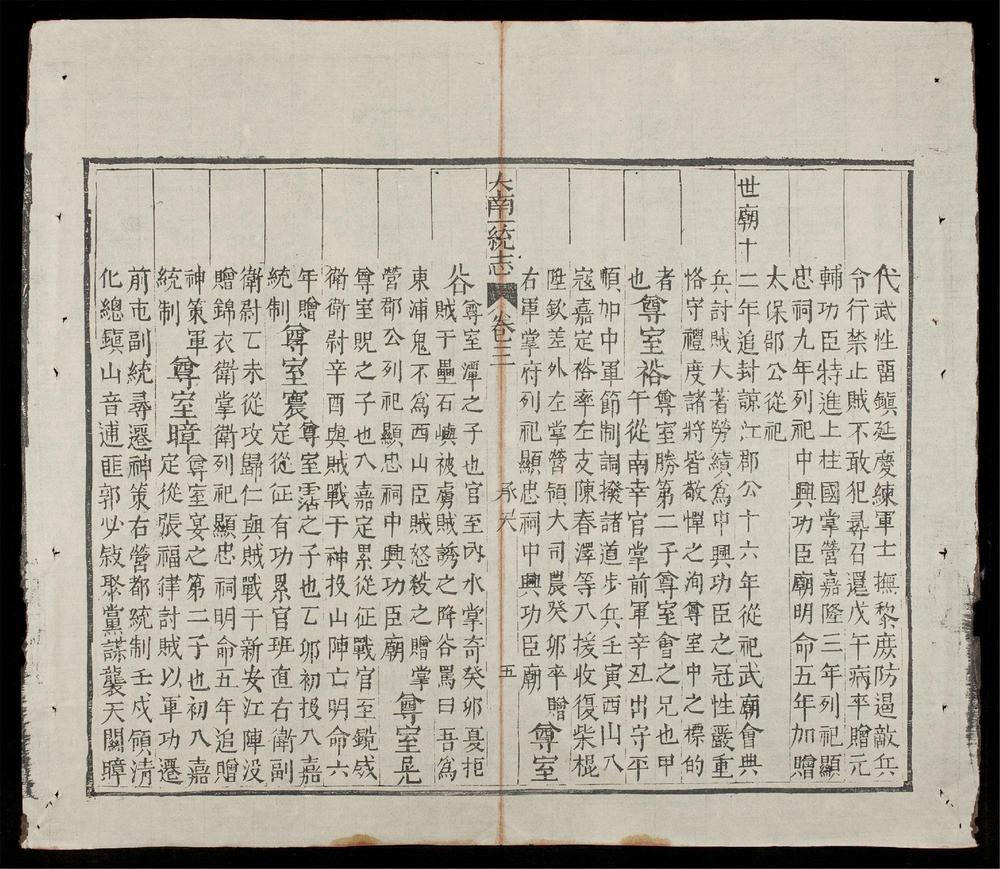 代武性畱鎮延慶練軍士撫黎庶防遏敵兵
令行禁止賊不敢犯尋召還戊午病卒贈元
輔功臣特進上柱國掌營嘉隆三年列祀顯
忠祠九年列祀中興功臣廟明命五年加贈
太保郡公從祀
世廟十二年追封諒江郡公十六年從祀武廟會典
兵討賊大著勞績為中興功臣之冠性嚴重
恪守禮度諸將皆敬憚之洵尊室中之標的
者尊室裕尊室勝第二子尊室會之兄也甲
也午從南幸官掌前軍辛丑出守平
順加中軍節制調撥諸道步兵壬寅西山入
寇嘉定裕率左支陳春澤等入援收復柴棍
陞欽差外左掌營領大司農癸卯卒贈尊室
右軍掌府列祀顯忠祠中興功臣廟
大南一統志 卷三 承天 五
谷尊室潭之子也官至內水掌奇癸卯憂拒
賊于壘石嶼被虜賊誘之降谷罵曰吾為
東浦鬼不為西山臣賊怒殺之贈掌尊室晃
營郡公列祀顯忠祠中興功臣廟
尊室貺之子也入嘉定累從征戰官至鏡成
衛衛尉辛酉與賊戰于神投山陣亡明命六
年贈尊室㝮尊室霑之子也乙卯初投入嘉
統制定從征有功累官班直右衛副
衛尉乙未從攻歸仁與賊戰于新安江陣没
贈錦衣衛掌衛列祀顯忠祠明命五年追贈
神策軍尊室暲尊室宴之第二子也初入嘉
統制定從張福律討賊以軍功遷
前屯副統尋遷神策右營都統制壬戌領清
化總鎮山音逋匪郭必敍聚黨謀襲天關暲